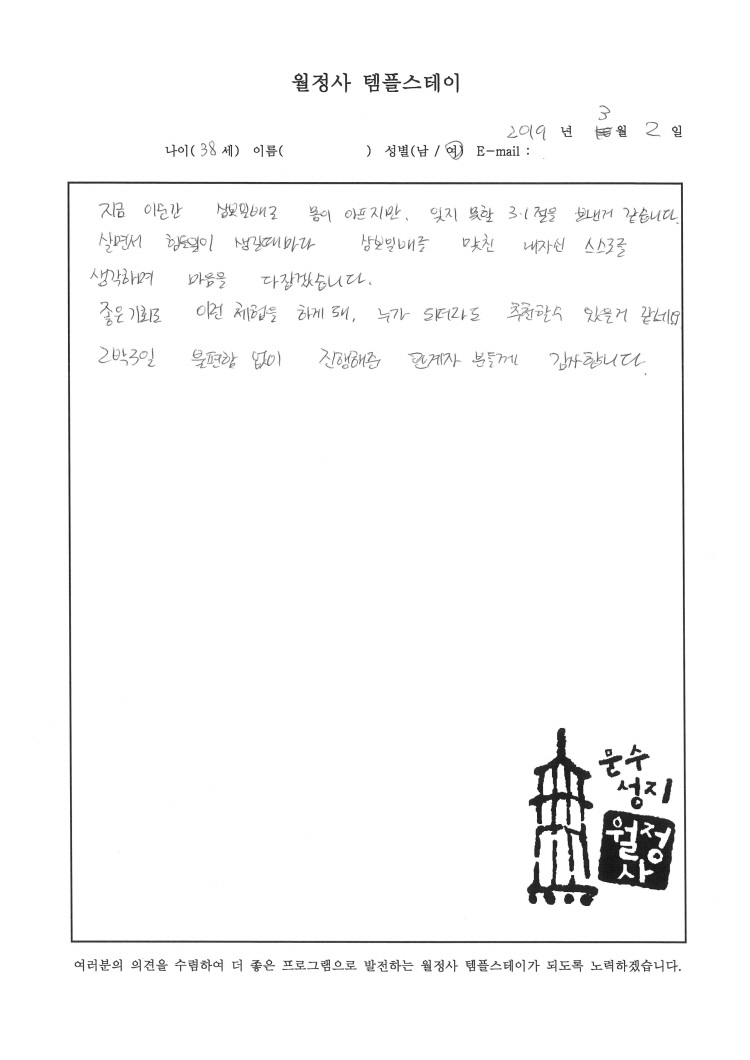 월정사 템플스테이
2019 년 3월 2 일
나이( 38 세) 이름( ) 성별(남 / 여) E-mail :
지금 이순간 삼보일배로 몸이 아프지만, 잊지 못할 3·1절을 보낸거 같습니다.
살면서 힘든일이 생길때마다 삼보일배를 맞친 내자신 스스로를
생각하며 마음을 다잡겠습니다.
좋은기회로 이런 체험을 하게 돼, 누가 되더라도 추천할수 있을거 같네요
2박3일 불편함 없이 진행해준 관계자 분들께 감사합니다.
문수
성지
월정
사
여러분의 의견을 수렴하여 더 좋은 프로그램으로 발전하는 월정사 템플스테이가 되도록 노력하겠습니다.